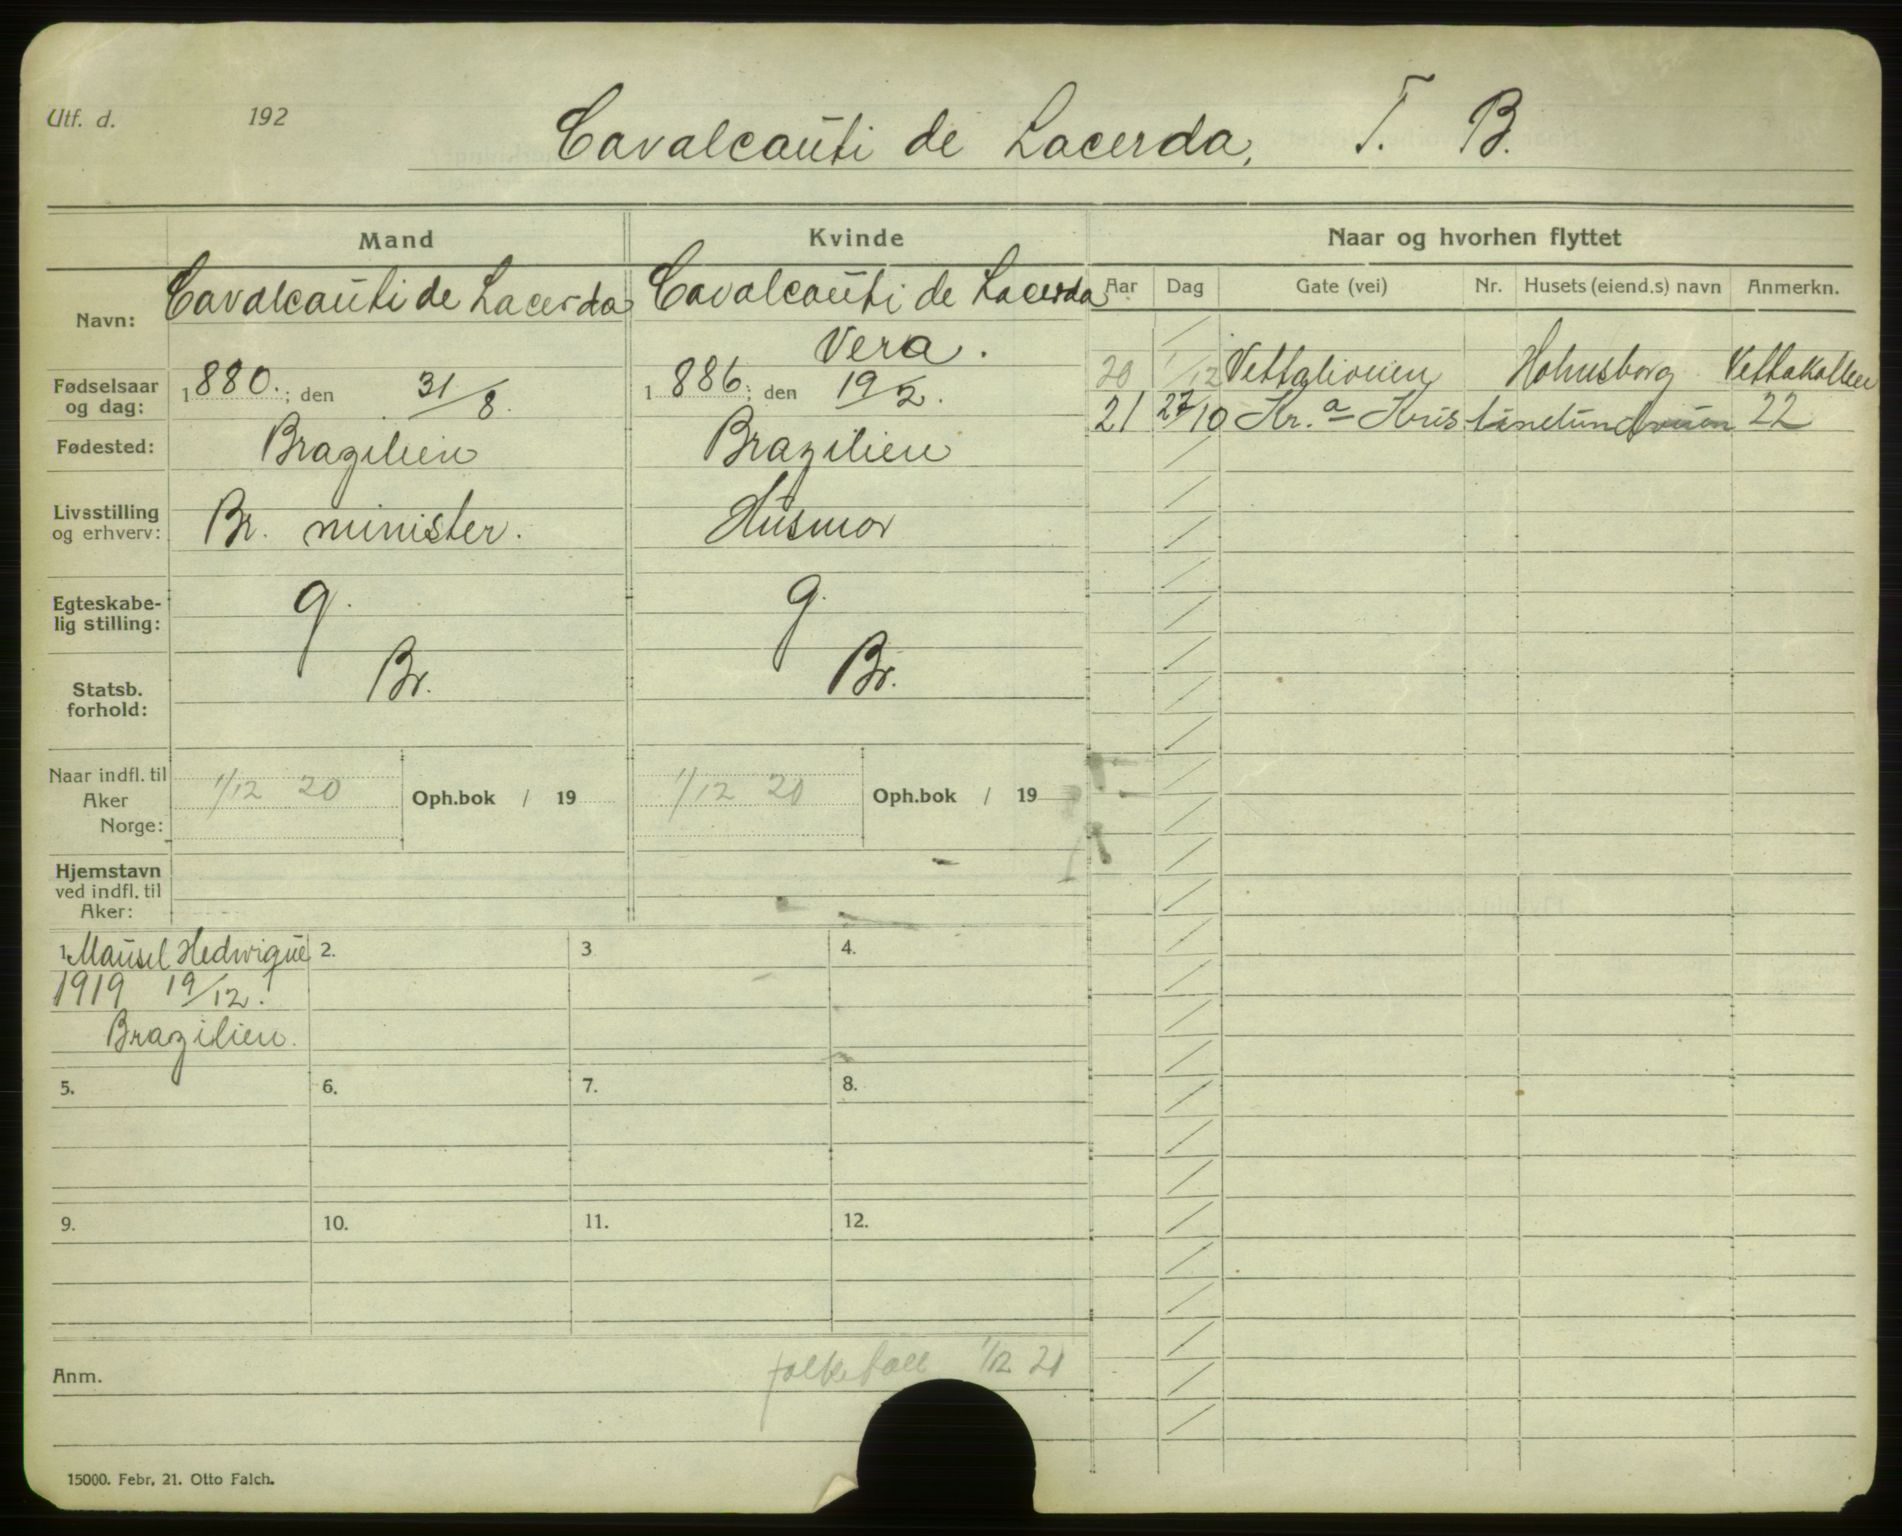 Utf. d. 192
Cavalcanti de Lacerda, T. B.
Mand
Kvinde
Naar og hvorhen flyttet
Navn:
Cavalcanti de Lacerda
Cavalcanti de Lacerda
Vera.
Aar Dag Gate (vei) Nr. Husets (eiend.s) navn Anmerkn.
20 1/12 Holmsborg Vettakollen
21 27/10 Kr.a Kristinelundveien 22
Fødselsaar
og dag:
1880.; den 31/8.
1886; den 19/2.
Fødested:
Brazilien
Brazilien
Livsstilling
og erhverv:
Br. minister.
Husmor
Egteskabe-
lig stilling:
g.
g.
Statsb.
forhold:
Br.
Br.
Naar indfl. til
Aker
Norge:
1/12 20 Oph.bok / 19
1/12 20 Oph.bok / 19
Hjemstavn
ved indfl. til
Aker:
1. Mausel Hedwigue
1919 19/12.
Brazilien.
2.
3
4.
5.
6.
7.
8.
9.
10.
11.
12.
Anm.
folketall 1/12 21
15000. Febr. 21. Otto Falch.